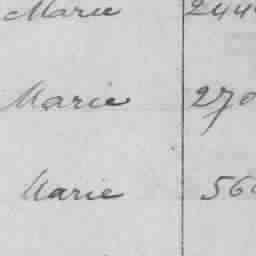 Marie 244
Marie 270
Marie 56